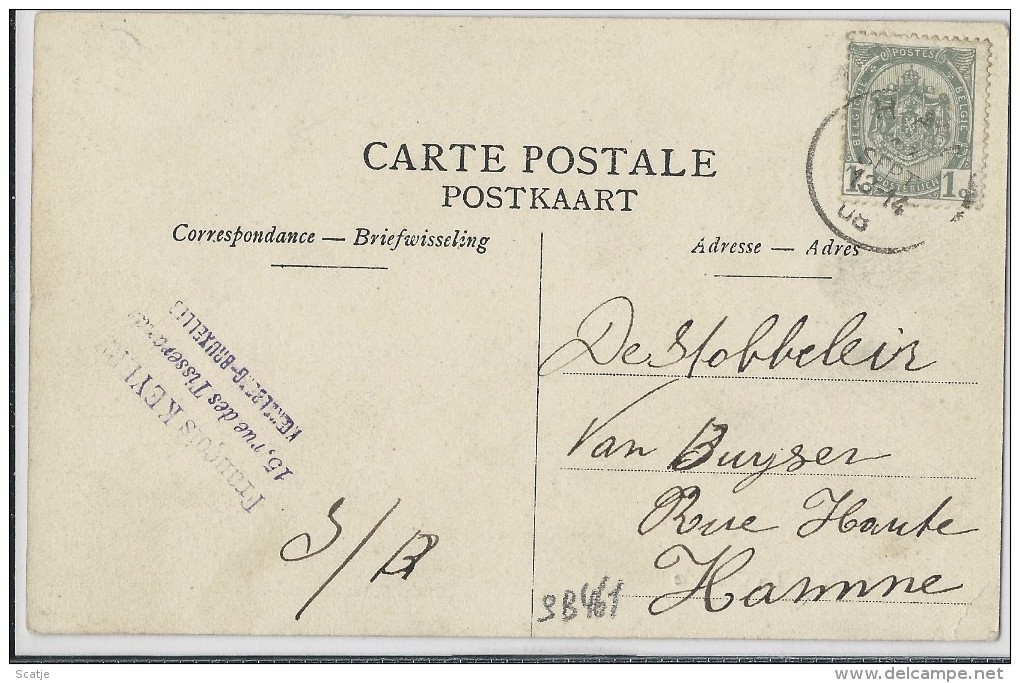 POSTES
BELGIQUE BELGIE
1 1
SEPT
13-14
08
CARTE POSTALE
POSTKAART
Correspondance — Briefwisseling
Adresse — Adres
François
15, rue des
BRUXELLES
S/R
De Mobbeleir
Van Buyser
Rue Haute
Hamme
SB461
Scatje
www.delcampe.net